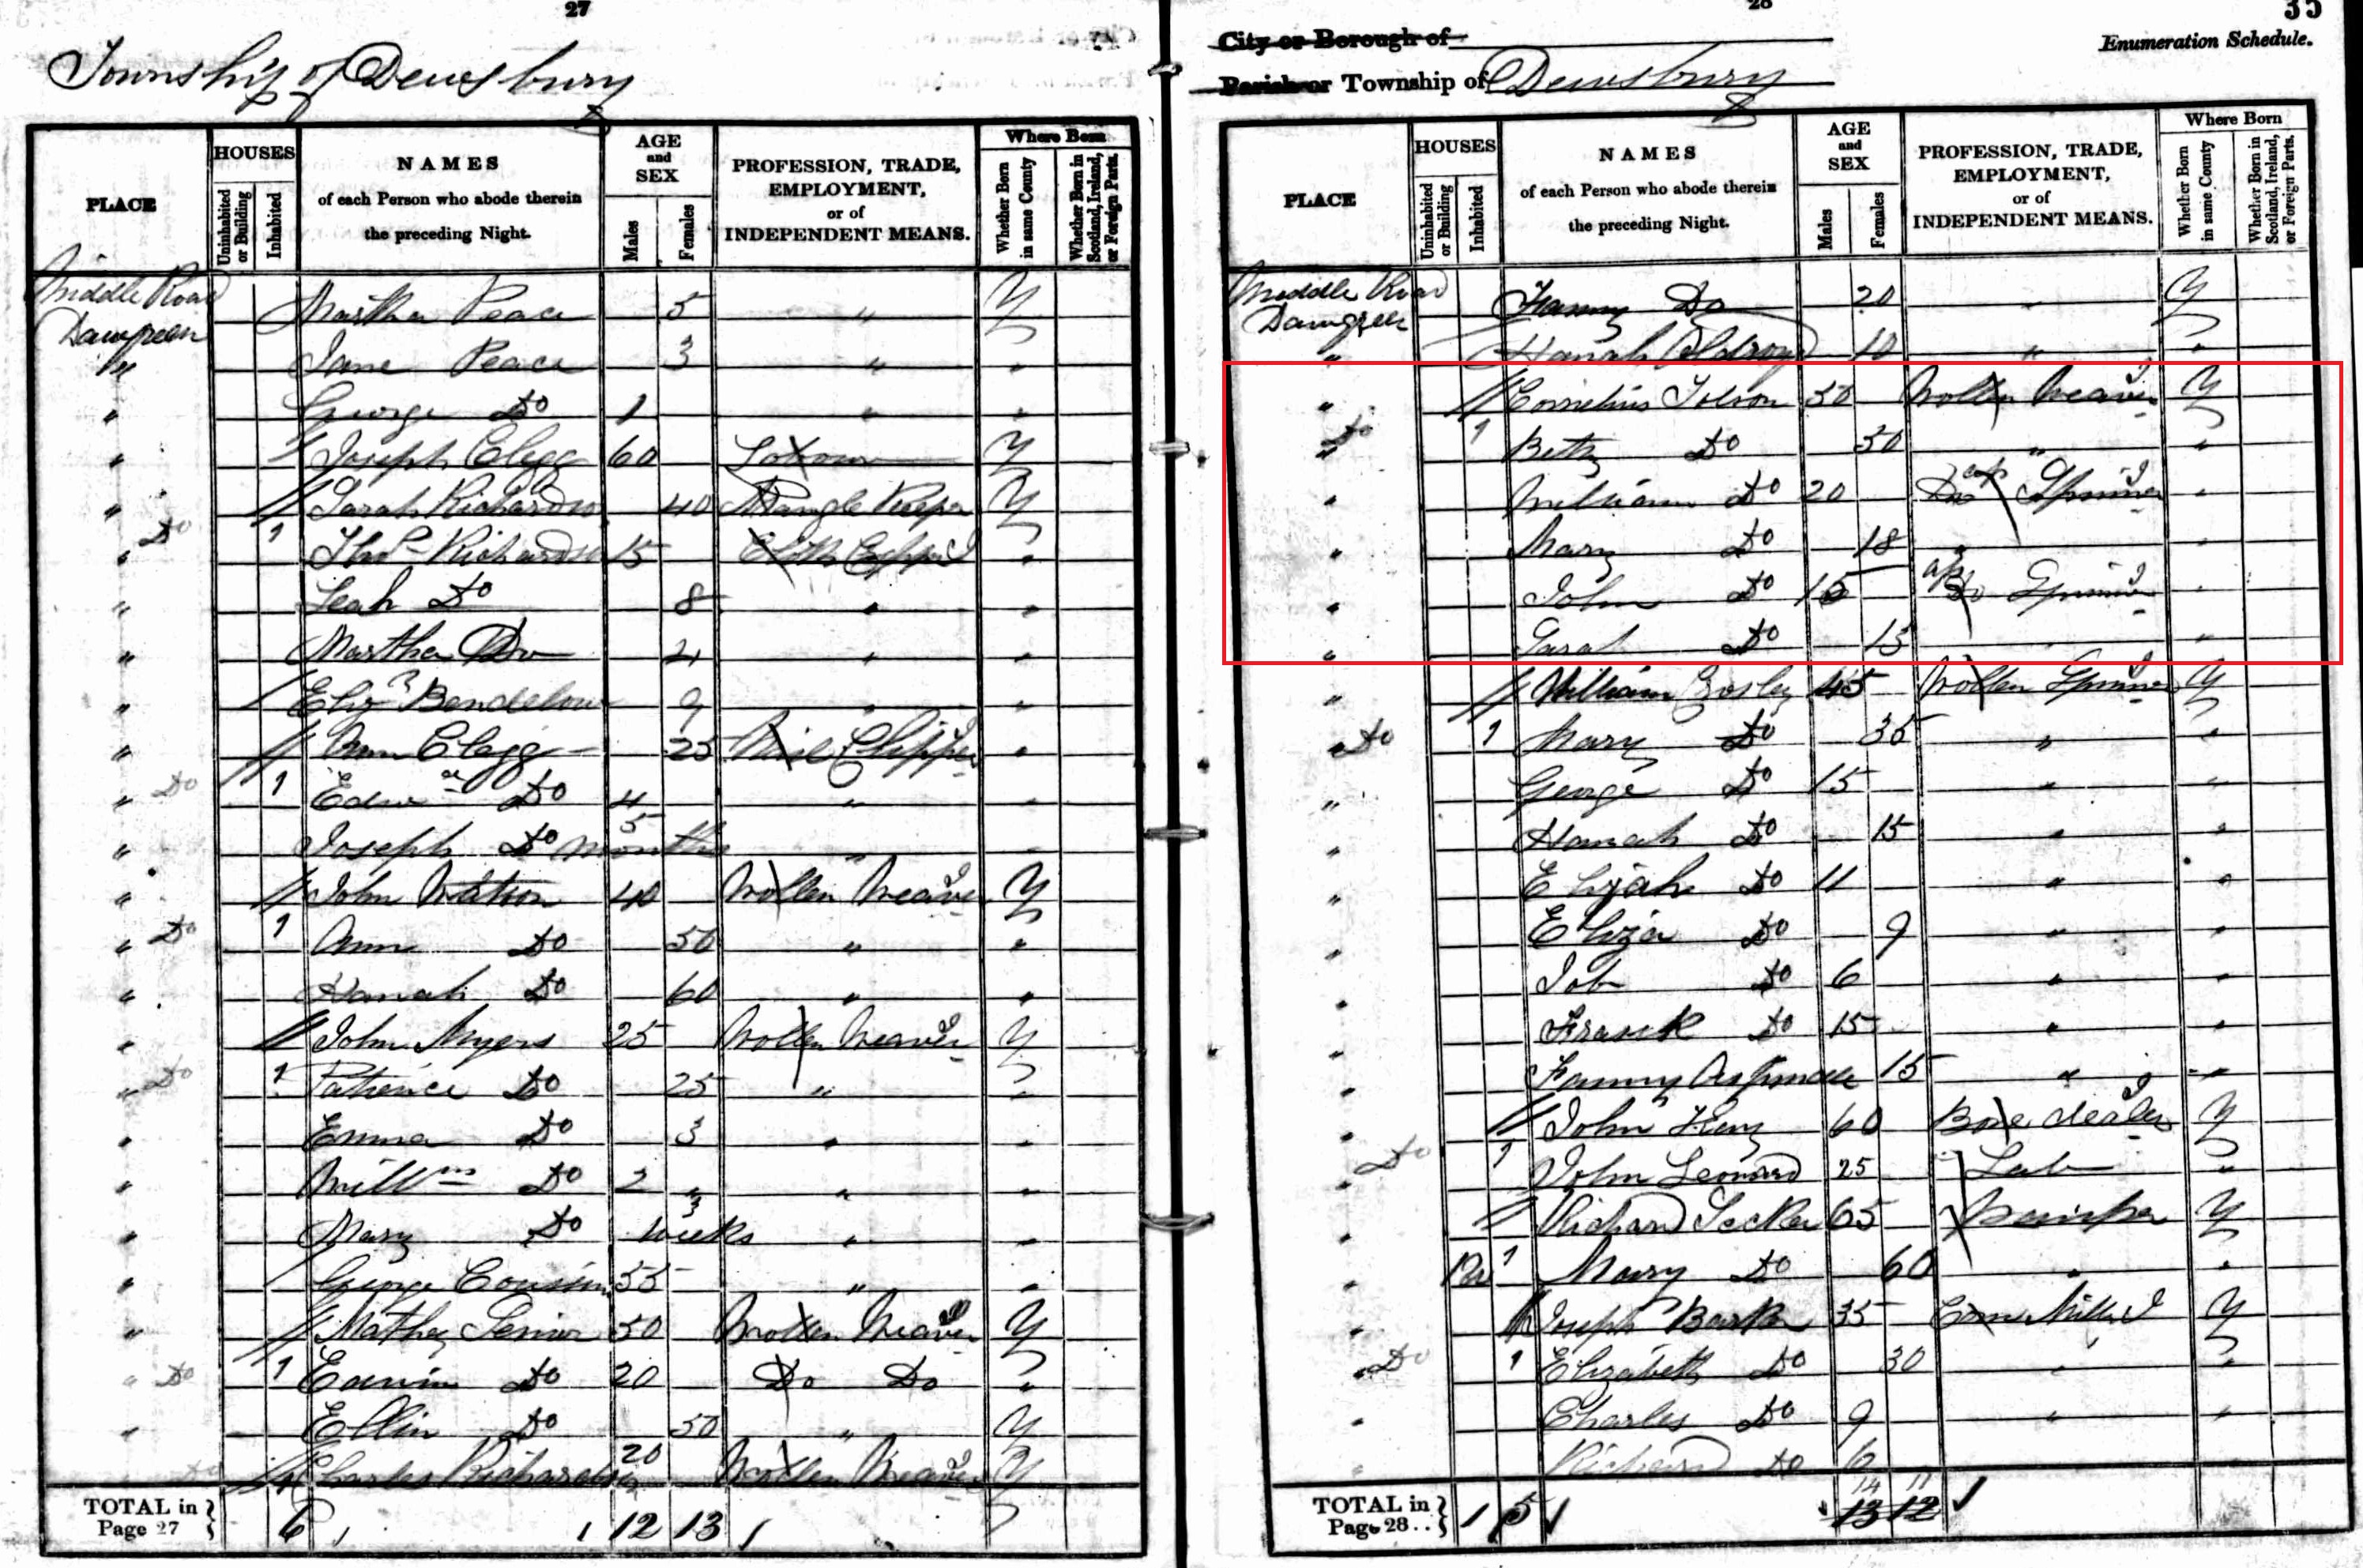 27
Township of Dewsbury
PLACE
HOUSES
Uninhabited or Building
Inhabited
NAMES
of each Person who abode therein
the preceding Night.
AGE
and
SEX
Males
Females
PROFESSION, TRADE,
EMPLOYMENT,
or of
INDEPENDENT MEANS.
Where Born
Whether Born in same County
Whether Born in Scotland, Ireland, or Foreign Parts.
Middle Road Martha Peace 5 " Y
" Jane Peace 3 " "
" George Do 1 " "
" Joseph Clegg 60 Y
" Sarah Richardson 40 Mangle Keeper Y
" Do 1 Thos Richardson 15 Cloth "
" Leah Do 8 " "
" Martha Do 4 " "
" Eliz Bendelow 9 " "
" Ann Clegg 25 "
" Do 1 Edwd Do 4 " "
" Joseph Do 5 months " "
" John Watson 40 Wollen Weaver Y
" Do 1 Ann Do 50 " "
" Hanah Do 60 " "
" John Myers 25 Wollen Weaver Y
" Do 1 Patience Do 25 " "
" Emma Do 3 " "
" Willm Do 2 " "
" Mary Do 3 weeks " "
" George Cousin 55 " "
" Mathey Senior 50 Wollen Weaver Y
" Do 1 Edwin Do 20 Do Do "
" Ellin Do 50 " Y
" Charles Richardson 20 Wollen Weaver Y
TOTAL in
Page 27 6 12 13
28
35
City or Borough of
Enumeration Schedule.
Parish or Township of Dewsbury
PLACE
HOUSES
Uninhabited or Building
Inhabited
NAMES
of each Person who abode therein
the preceding Night.
AGE
and
SEX
Males
Females
PROFESSION, TRADE,
EMPLOYMENT,
or of
INDEPENDENT MEANS.
Where Born
Whether Born in same County
Whether Born in Scotland, Ireland, or Foreign Parts.
Middle Road Fanny Do 20 " Y
" Hanah Oldroyd 10 " "
" Cornelius Tolson 50 Wollen Weaver Y
" Do 1 Betty Do 50 " "
" William Do 20 Spinner "
" Mary Do 18 " "
" John Do 15 Spinner "
" Sarah Do 13 "
" William 45 Wollen Spinner Y
" Do 1 Mary Do 35 " "
" George Do 15 " "
" Hanah Do 15 " "
" Elijah Do 11 " "
" Eliza Do 9 " "
" Job Do 6 " "
" Frank Do 15 " "
" Fanny 15 " "
" John 60 dealer Y
" Do 1 John Leonard 25 Lab "
" Richard 65 Y
" 1 Mary Do 60 " "
" Joseph 35 Corn Miller Y
" Do 1 Elizabeth Do 30 " "
" Charles Do 9 " "
" Richard Do 6
14 11
TOTAL in
Page 28.. 1 5 13 12